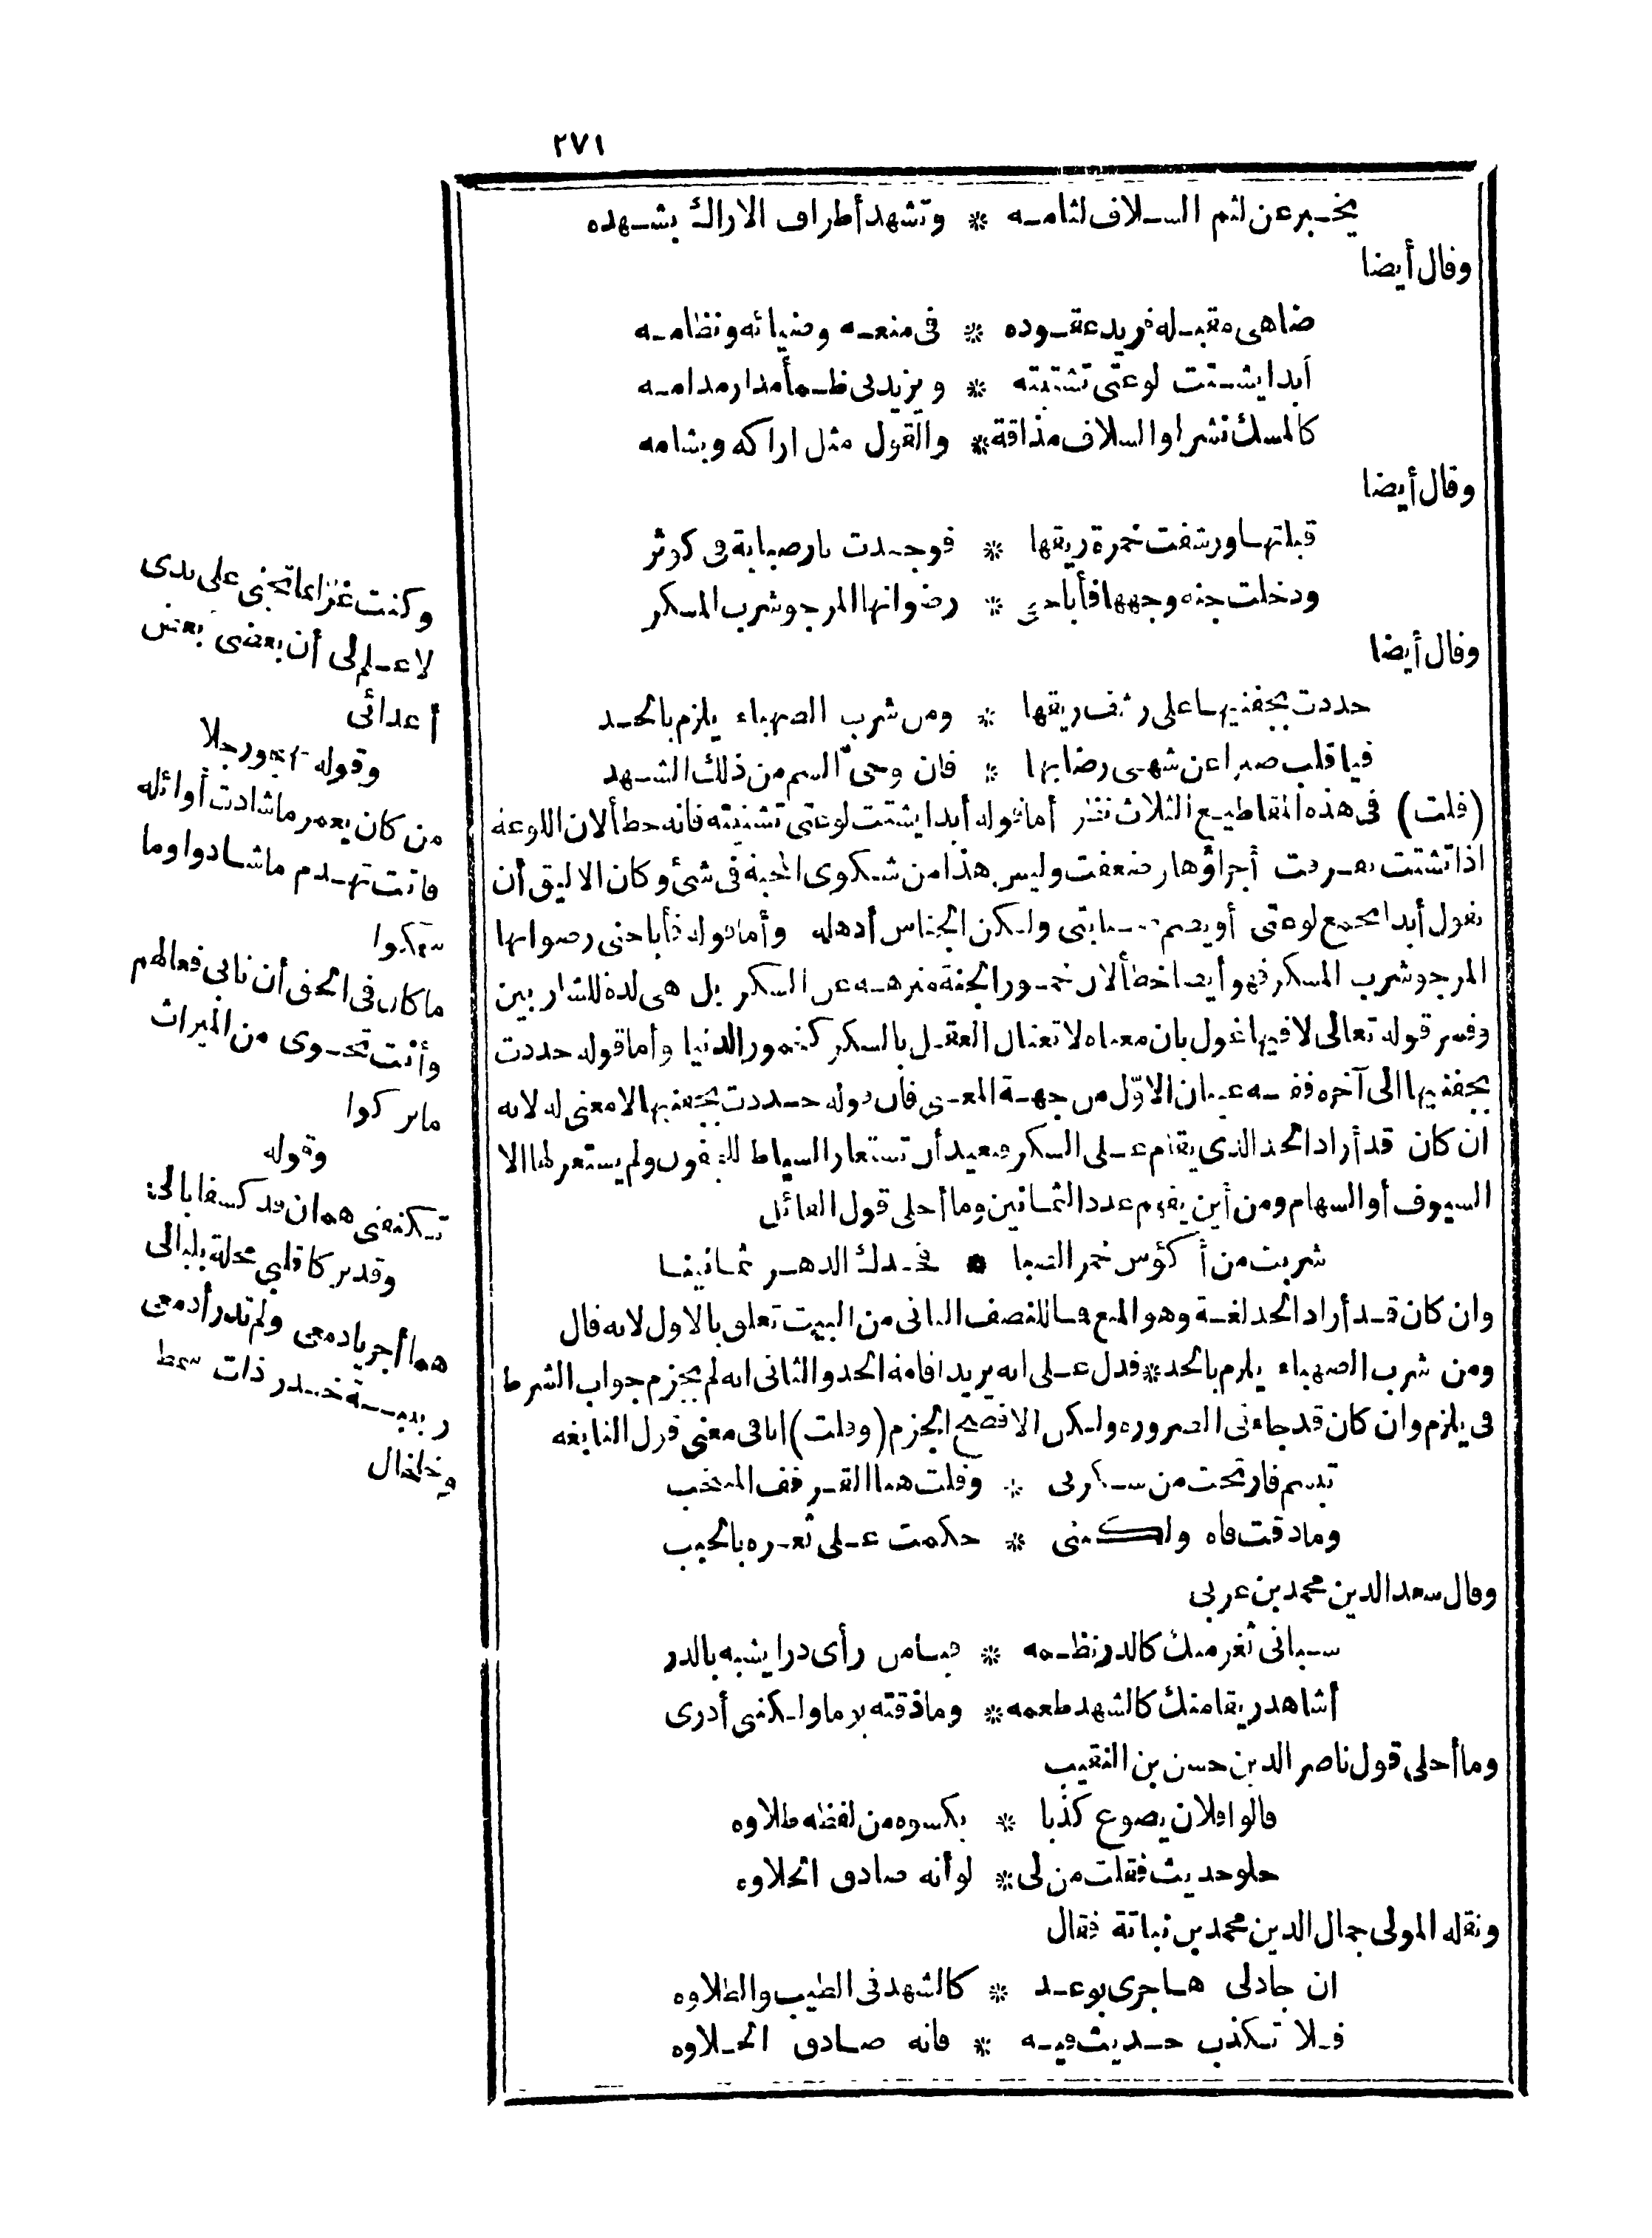 ٢٧١
يخبر عن لثم السلاف لثامه * وتشهد أطراف الاراك بشهده
وقال أيضا
ضاهى مقبله فريد عقوده * فى منعه وضيائه ونظامه
أبدا يشتت لوعتى تشتيته * ويزيدنى ظمأ مدار مدامه
كالمسك نشرا والسلاف مذاقة * والقول مثل اراكه وبشامه
وقال أيضا
قبلتها ورشفت خمرة ريقها * فوجدت نار صبابة فى كوثر
ودخلت جنة وجهها فأباحنى * رضوانها المرجو شرب المسكر
وقال أيضا
حددت بجفنيها على رشف ريقها * ومن شرب الصهباء يلزم بالحد
فيا قلب صبرا عن شهى رضابها * فان وحىّ السم من ذلك الشهد
(قلت) فى هذه المقاطيع الثلاث نظر أما قوله أبدا يشتت لوعتى تشتيته فانه خطأ لان اللوعة
اذا تشتت تفرقت أجزاؤها وضعفت وليس هذا من شكوى المحبة فى شئ وكان الاليق أن
يقول أبدا يجمع لوعتى أو يضم صبابتى ولكن الجناس أذهله وأما قوله فأباحنى رضوانها
المرجو شرب المسكر فهو أيضا خطأ لان خمور الجنة منزهة عن السكر بل هى لذة للشاربين
وفسر قوله تعالى لا فيها غول بان معناه لا تغتال العقل بالسكر كخمور الدنيا وأما قوله حددت
بجفنيها الى آخره ففيه عيبان الاوّل من جهة المعنى فان قوله حددت بجفنيها لا معنى له لانه
ان كان قد أراد الحد الذى يقام على السكر فبعيد أن تستعار السياط للجفون ولم يستعر لها الا
السيوف أو السهام ومن أين يفهم عدد الثمانين وما أحلى قول القائل
شربت من أكؤس خمر الصبا * فحدك الدهر ثمانينا
وان كان قد أراد الحد لغة وهو المنع فما للنصف الثانى من البيت تعلق بالاول لانه قال
ومن شرب الصهباء يلزم بالحد * فدل على انه يريد اقامة الحد والثانى انه لم يجزم جواب الشرط
فى يلزم وان كان قد جاء فى الضرورة ولكن الافصح الجزم (وقلت) انا فى معنى قول النابغه
تبسم فارتحت من سكرتى * وقلت هنا القرقف المنتخب
وما ذقت فاه ولكننى * حكمت على ثغره بالحبب
وقال سعد الدين محمد بن عربى
سبانى ثغر منك كالدر نظمه * فيا من رأى درا يشبه بالدر
أشاهد ريقا منك كالشهد طعمه * وما ذقته يوما ولكننى أدرى
وما أحلى قول ناصر الدين حسن بن النقيب
قالوا فلان يصوغ كذبا * يكسوه من لفظه طلاوه
حلو حديث فقلت من لى * لو أنه صادق الحلاوه
ونقله المولى جمال الدين محمد بن نباتة فقال
ان جادلى هاجرى بوعد * كالشهد فى الطيب والطلاوه
فلا تكذب حديث فيه * فانه صادق الحلاوه
وكنت غزاعا تجنى على يدى
لا علم لى أن بعضى بعض
أعدائى
وقوله رجلا
من كان يعمر ماشادت أوائله
فانت تهدم ماشادوا وما
سمكوا
ماكان فى الحق أن تأبى فعالهم
وأنت تحوى من الميراث
ماتركوا
وقوله
تكنفنى همان قد كسفا بالى
وقد تركا قلبى محلة بلبالى
هما أجريا دمعى ولم تدر أدمعى
ربيبة خدر ذات سمط
وخلخال